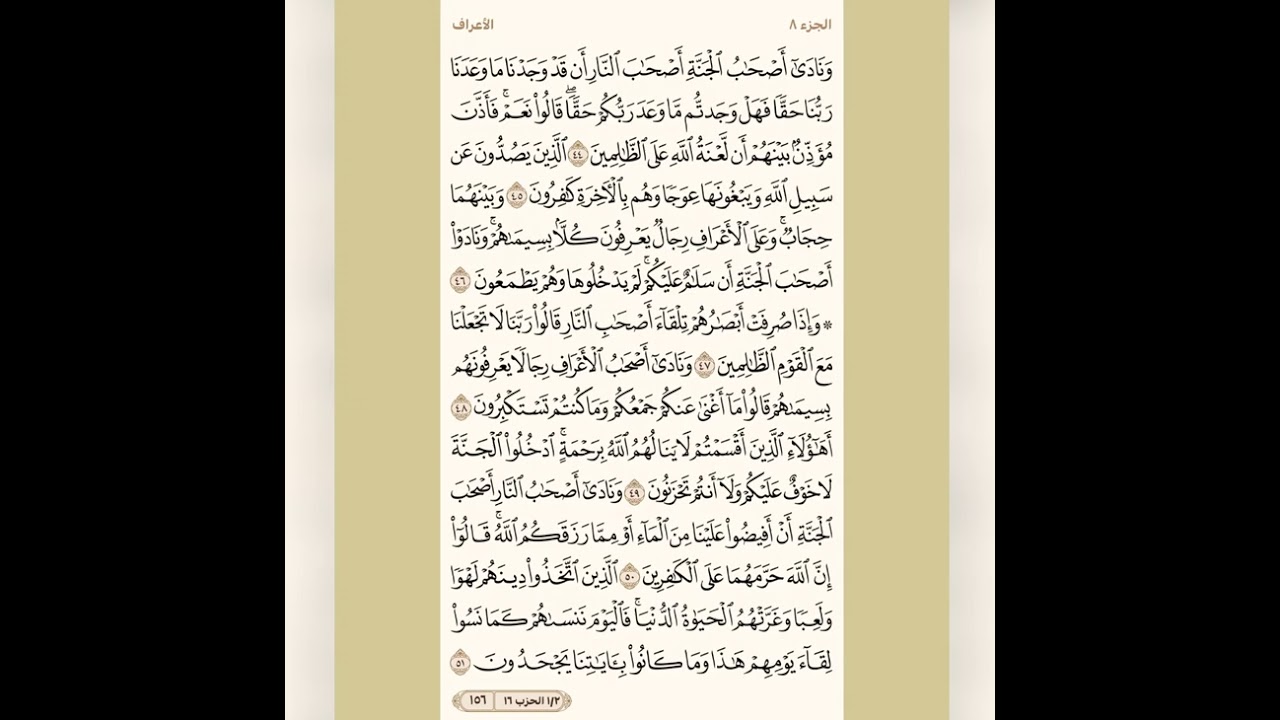 الجزء ٨
الأعراف
وَنَادَىٰٓ أَصْحَٰبُ ٱلْجَنَّةِ أَصْحَٰبَ ٱلنَّارِ أَن قَدْ وَجَدْنَا مَا وَعَدَنَا
رَبُّنَا حَقًّا فَهَلْ وَجَدتُّم مَّا وَعَدَ رَبُّكُمْ حَقًّاۖ قَالُوا۟ نَعَمْۚ فَأَذَّنَ
مُؤَذِّنٌۢ بَيْنَهُمْ أَن لَّعْنَةُ ٱللَّهِ عَلَى ٱلظَّٰلِمِينَ ٤٤ ٱلَّذِينَ يَصُدُّونَ عَن
سَبِيلِ ٱللَّهِ وَيَبْغُونَهَا عِوَجًا وَهُم بِٱلْءَاخِرَةِ كَٰفِرُونَ ٤٥ وَبَيْنَهُمَا
حِجَابٌۚ وَعَلَى ٱلْأَعْرَافِ رِجَالٌ يَعْرِفُونَ كُلًّۢا بِسِيمَىٰهُمْۚ وَنَادَوْا۟
أَصْحَٰبَ ٱلْجَنَّةِ أَن سَلَٰمٌ عَلَيْكُمْۚ لَمْ يَدْخُلُوهَا وَهُمْ يَطْمَعُونَ ٤٦
* وَإِذَا صُرِفَتْ أَبْصَٰرُهُمْ تِلْقَآءَ أَصْحَٰبِ ٱلنَّارِ قَالُوا۟ رَبَّنَا لَا تَجْعَلْنَا
مَعَ ٱلْقَوْمِ ٱلظَّٰلِمِينَ ٤٧ وَنَادَىٰٓ أَصْحَٰبُ ٱلْأَعْرَافِ رِجَالًا يَعْرِفُونَهُم
بِسِيمَىٰهُمْ قَالُوا۟ مَآ أَغْنَىٰ عَنكُمْ جَمْعُكُمْ وَمَا كُنتُمْ تَسْتَكْبِرُونَ ٤٨
أَهَٰٓؤُلَآءِ ٱلَّذِينَ أَقْسَمْتُمْ لَا يَنَالُهُمُ ٱللَّهُ بِرَحْمَةٍۚ ٱدْخُلُوا۟ ٱلْجَنَّةَ
لَا خَوْفٌ عَلَيْكُمْ وَلَآ أَنتُمْ تَحْزَنُونَ ٤٩ وَنَادَىٰٓ أَصْحَٰبُ ٱلنَّارِ أَصْحَٰبَ
ٱلْجَنَّةِ أَنْ أَفِيضُوا۟ عَلَيْنَا مِنَ ٱلْمَآءِ أَوْ مِمَّا رَزَقَكُمُ ٱللَّهُۚ قَالُوٓا۟
إِنَّ ٱللَّهَ حَرَّمَهُمَا عَلَى ٱلْكَٰفِرِينَ ٥٠ ٱلَّذِينَ ٱتَّخَذُوا۟ دِينَهُمْ لَهْوًا
وَلَعِبًا وَغَرَّتْهُمُ ٱلْحَيَوٰةُ ٱلدُّنْيَاۚ فَٱلْيَوْمَ نَنسَىٰهُمْ كَمَا نَسُوا۟
لِقَآءَ يَوْمِهِمْ هَٰذَا وَمَا كَانُوا۟ بِـَٔايَٰتِنَا يَجْحَدُونَ ٥١
١/٢ الحزب ١٦
١٥٦